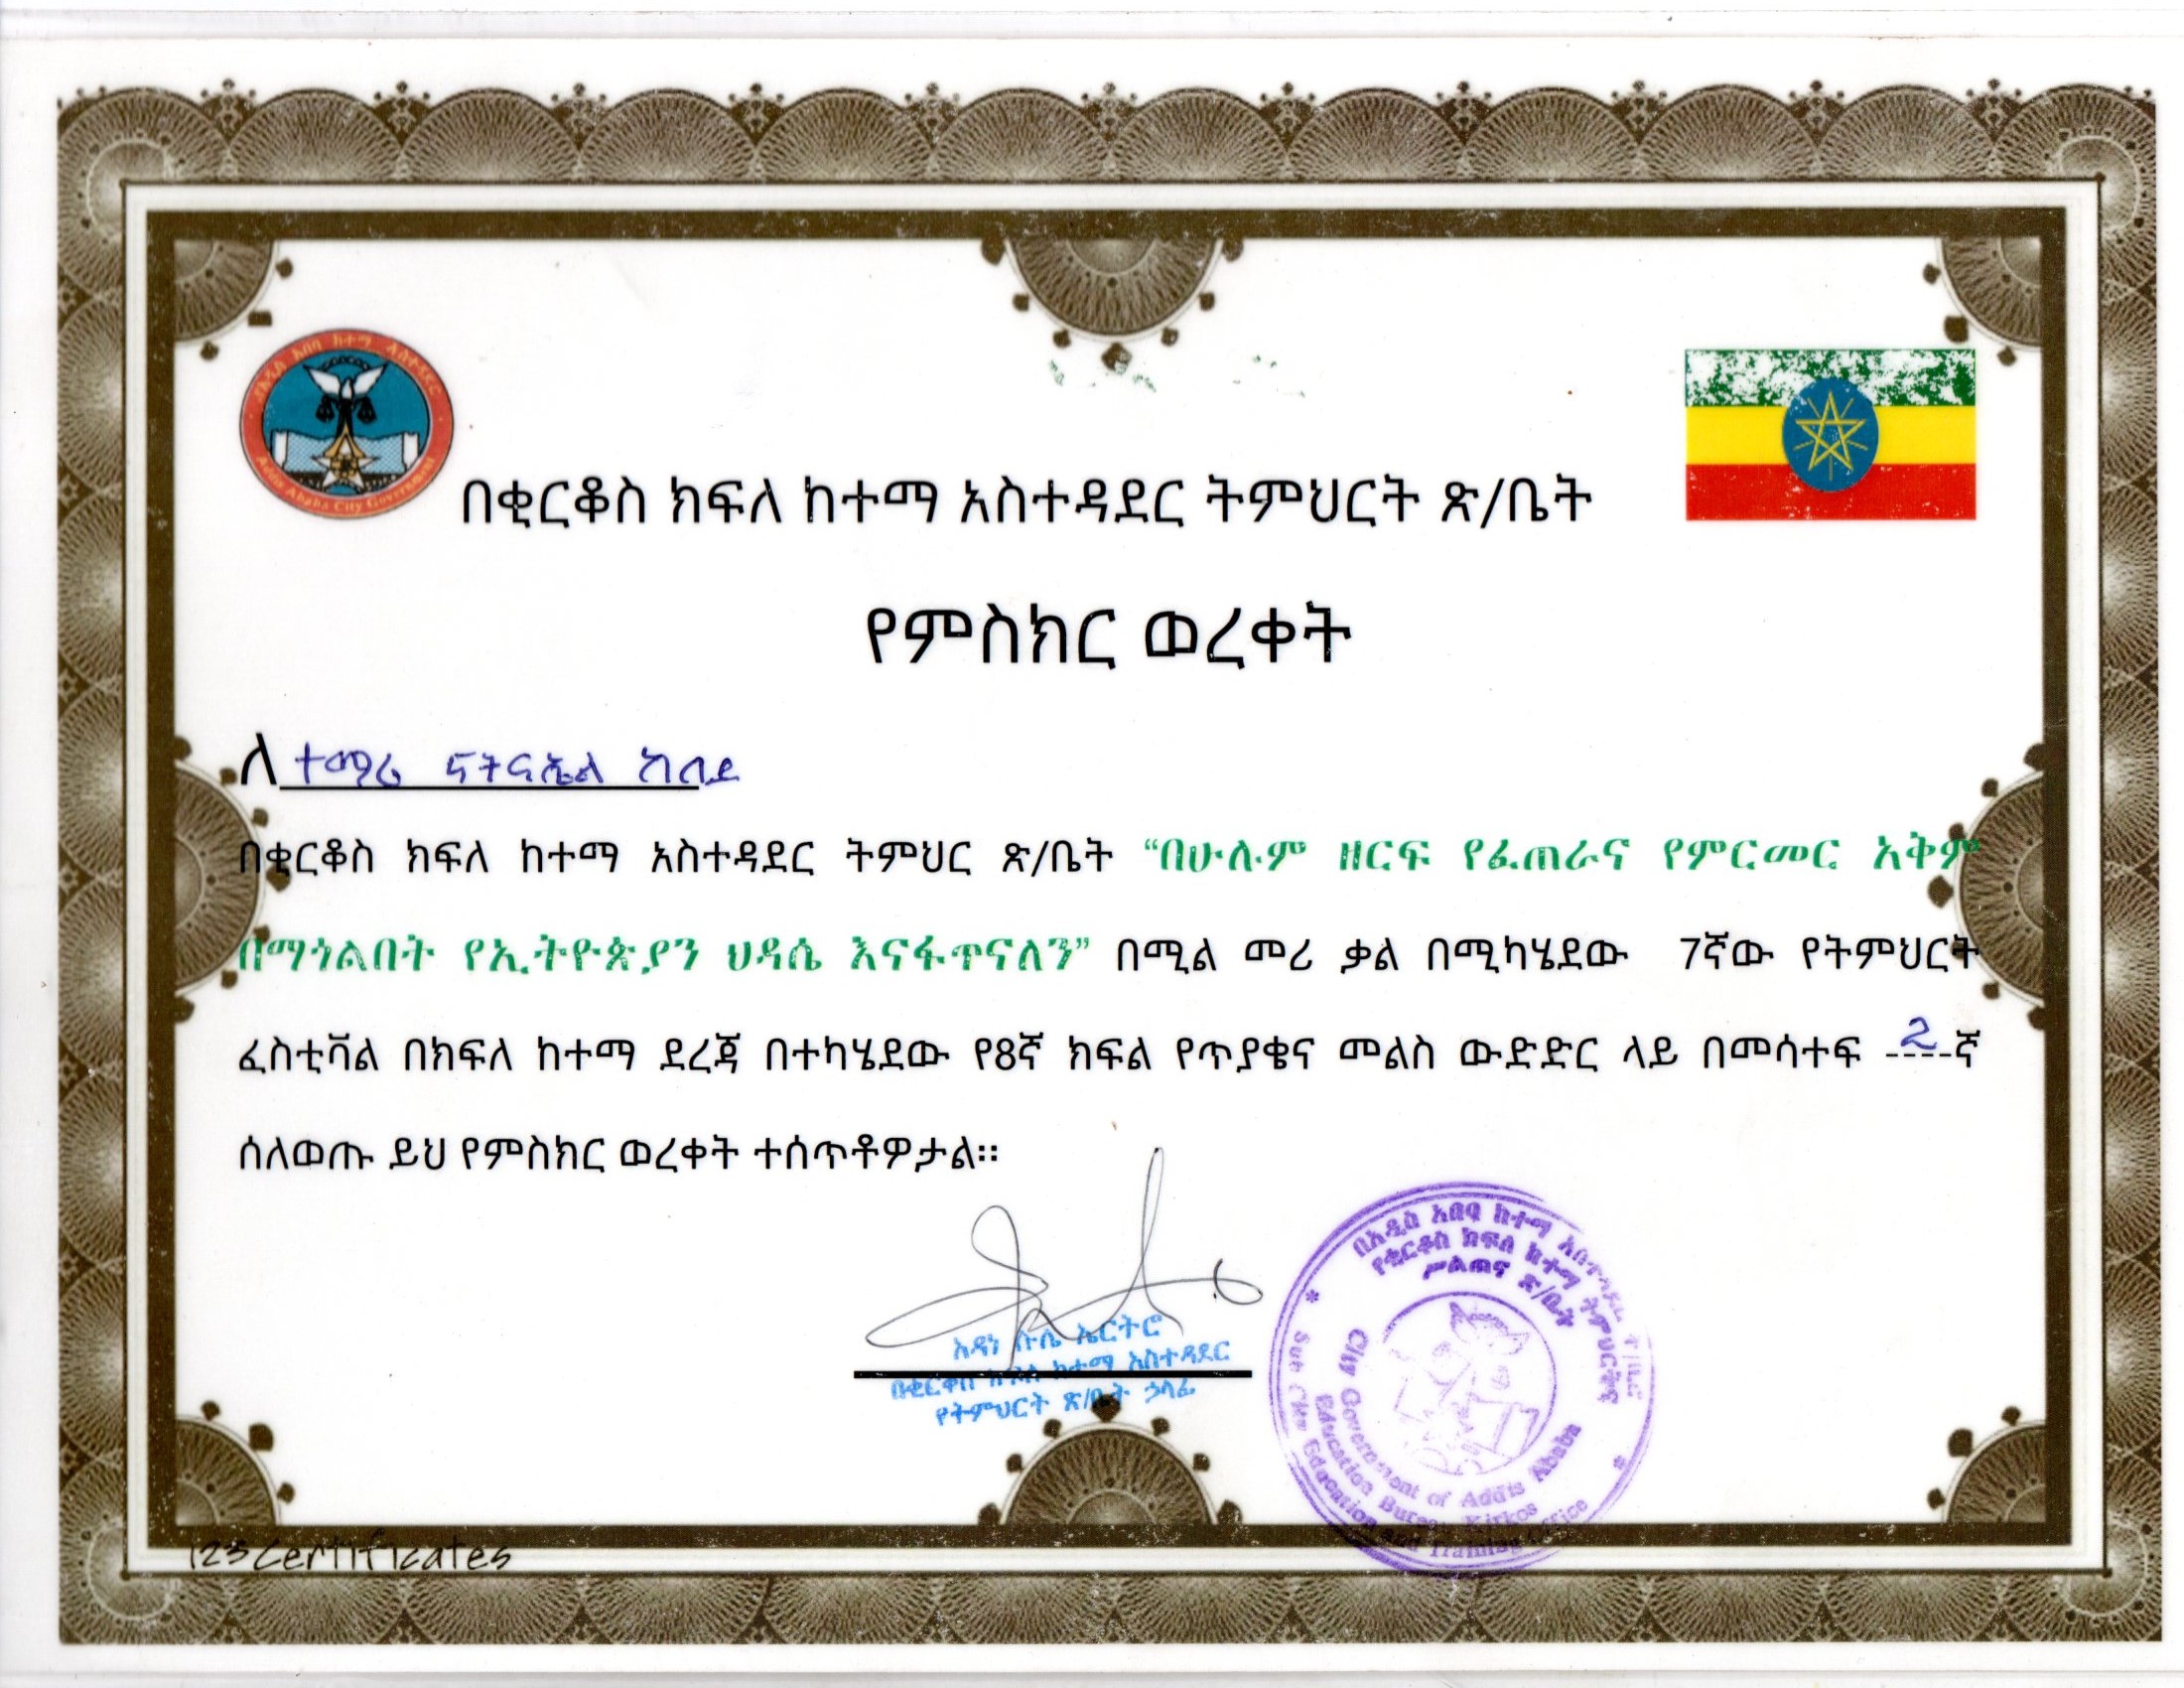 የአዲስ አበባ ከተማ አስተዳደር
Addis Ababa City Government
በቂርቆስ ክፍለ ከተማ አስተዳደር ትምህርት ጽ/ቤት
የምስክር ወረቀት
ለ ተማሪ ናትናኤል ከበደ
በቂርቆስ ክፍለ ከተማ አስተዳደር ትምህር ጽ/ቤት “በሁሉም ዘርፍ የፈጠራና የምርመር አቅም
በማጎልበት የኢትዮጵያን ህዳሴ እናፋጥናለን” በሚል መሪ ቃል በሚካሄደው 7ኛው የትምህርት
ፈስቲቫል በክፍለ ከተማ ደረጃ በተካሄደው የ8ኛ ክፍል የጥያቄና መልስ ውድድር ላይ በመሳተፍ 2ኛ
ሰለወጡ ይህ የምስክር ወረቀት ተሰጥቶዎታል፡፡
አዳነ ኤርትሮ
በቂርቆስ ክፍለ ከተማ አስተዳደር
የትምህርት ጽ/ቤት ኃላፊ
በአዲስ አበባ ከተማ አስተዳደር ት/ቢሮ
የቂርቆስ ክፍለ ከተማ ትምህርትና
ሥልጠና ጽ/ቤት
City Government of Addis Ababa
Education Bureau Kirkos
Sub City Education and Training Office
123Certificates